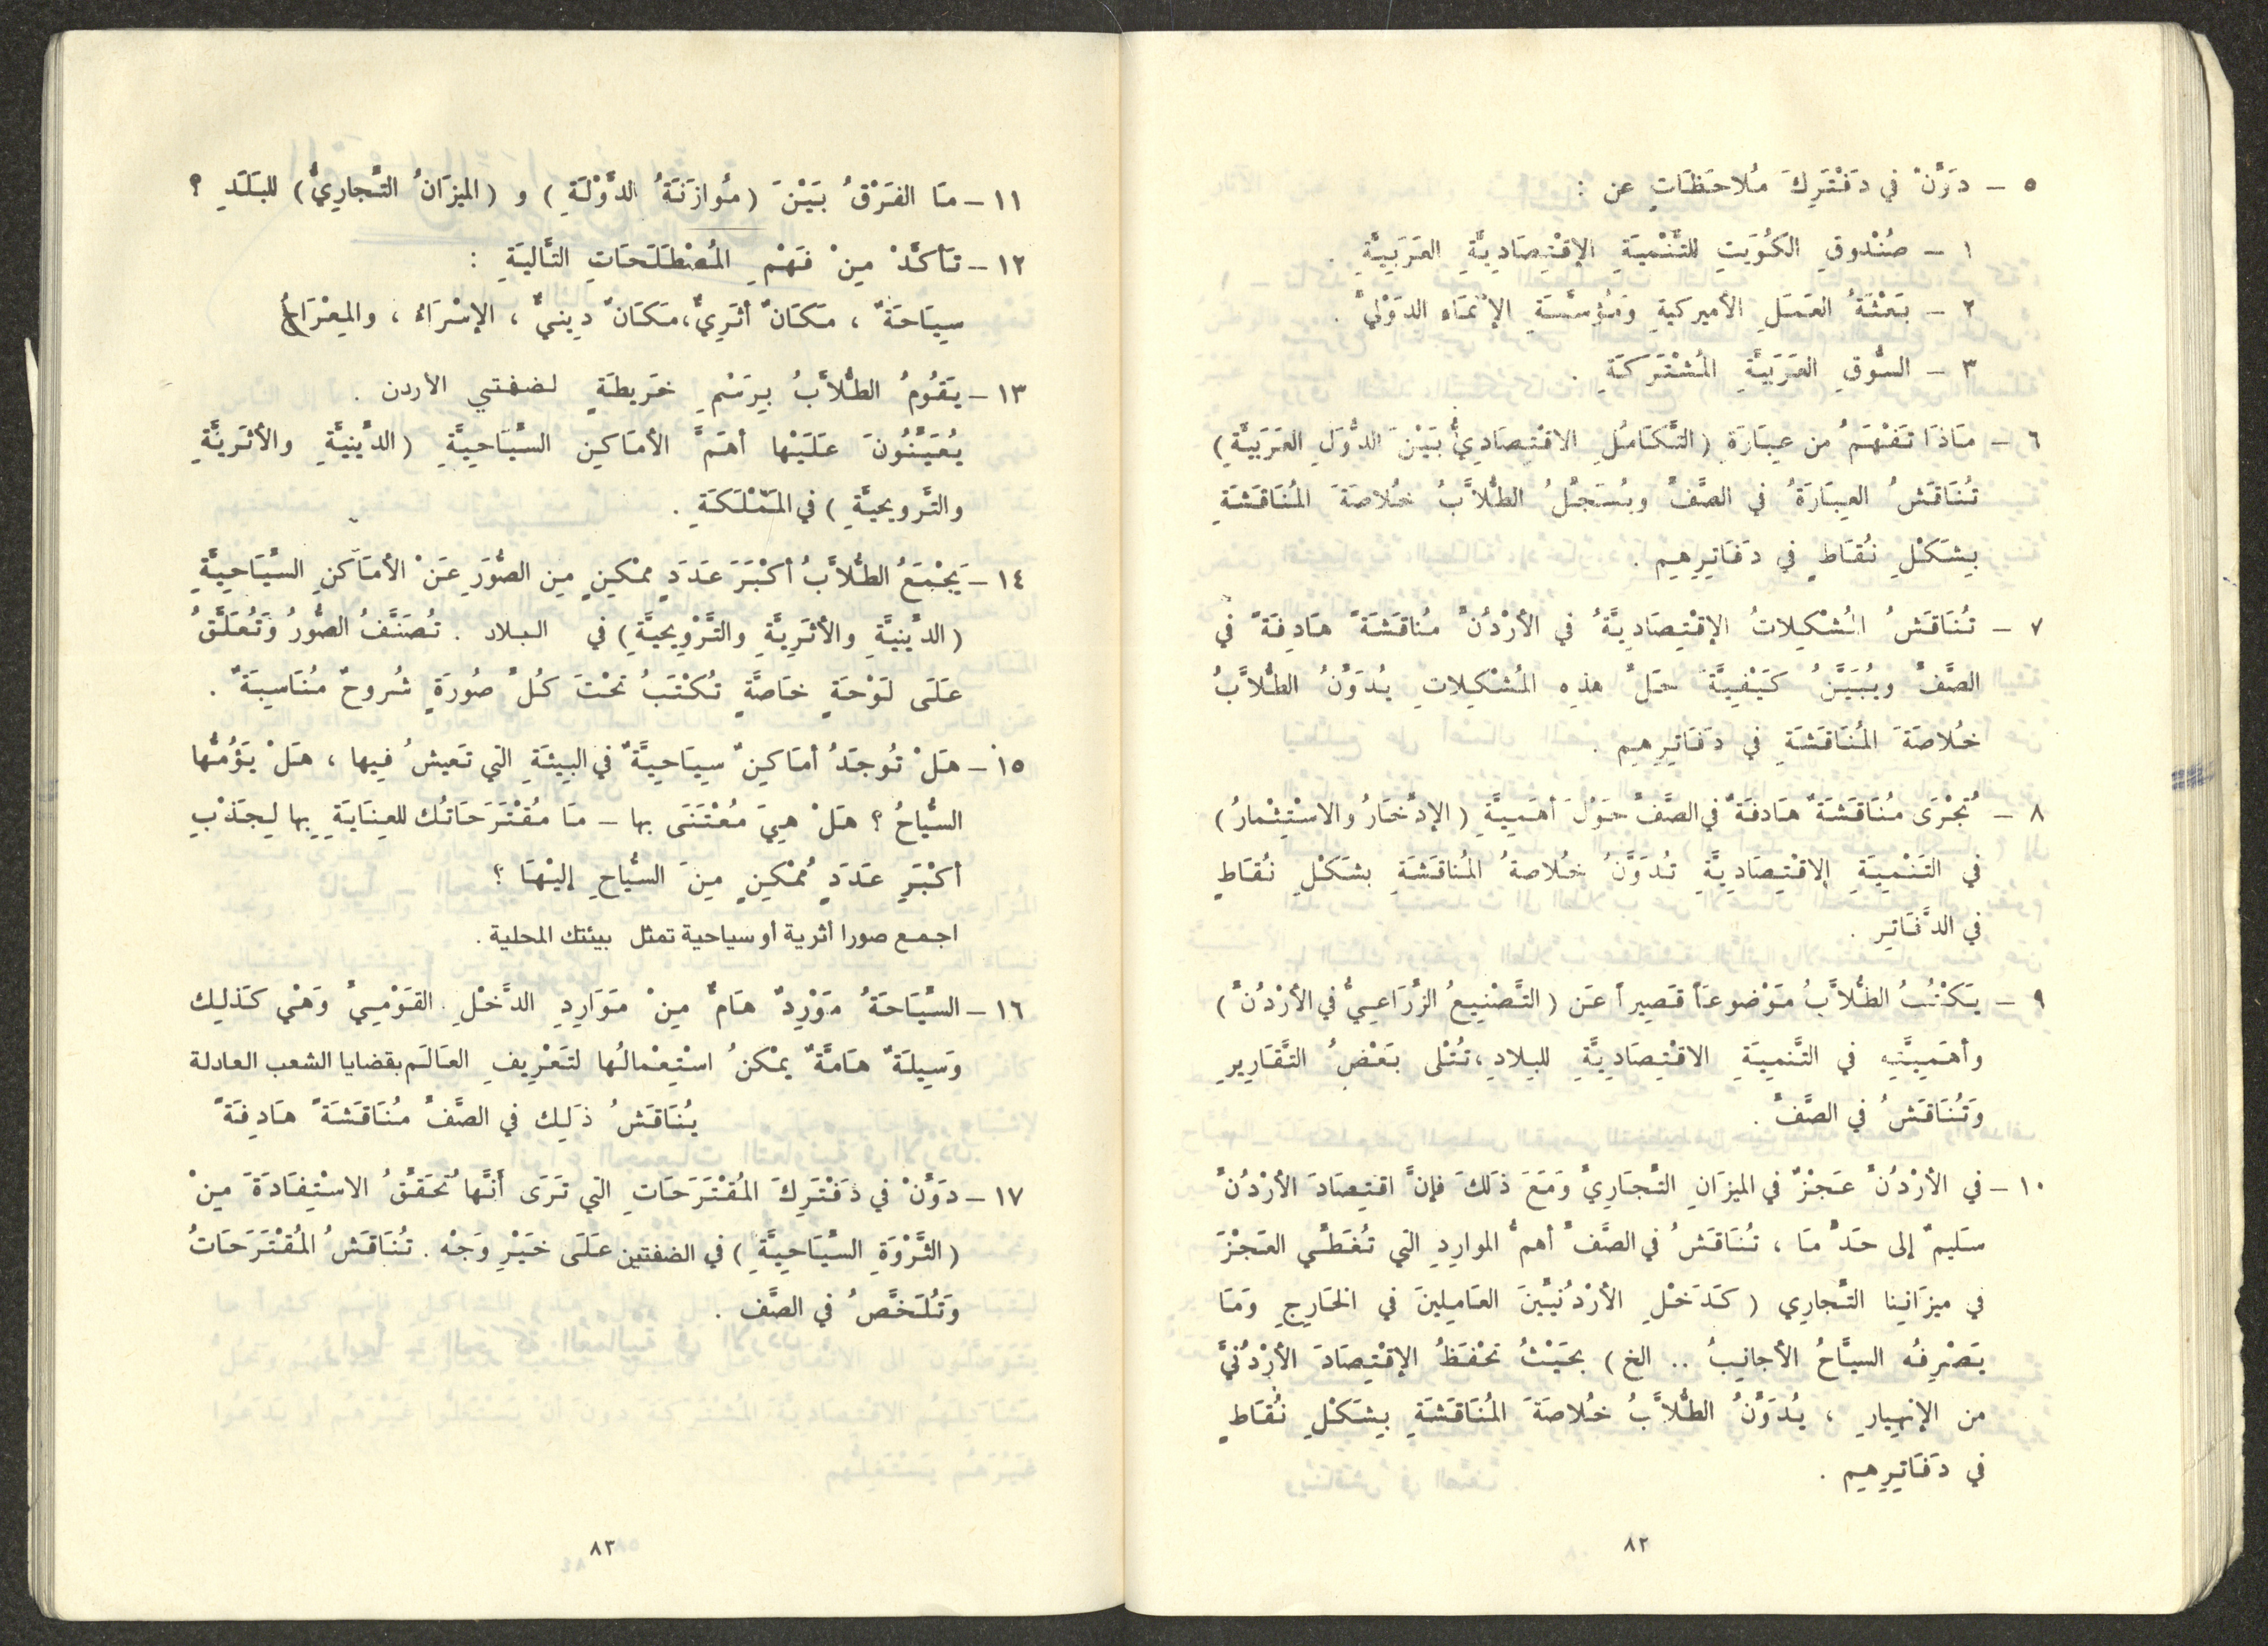 ٥ – دَوِّنْ في دَفْتَرِكَ مُلاحَظَاتٍ عن :
١ – صُنْدوقِ الكُوَيتِ للتَّنْمِيَةِ الإقْتِصَادِيَّةِ العَرَبِيَّةِ .
٢ – بَعْثَةُ العَمَلِ الأميركيةِ وَمُؤسَّسَةِ الإنْمَاء الدَوْليِّ .
٣ – السُّوقِ العَرَبيَّةِ المُشْتَركَةِ .
٦ – مَاذَا تَفْهَمُ من عِبَارَةِ (التَّكَامُلِ الاقْتِصَادِيِّ بَيْنَ الدُّوَلِ العَرَبيَّةِ)
تُنَاقَشُ العِبَارَةُ في الصَّفِّ ويُسَجِّلُ الطُّلاَّبُ خُلاصَةَ المُنَاقَشَةِ
بِشَكْلِ نُقَاطٍ في دَفَاتِرِهِم .
٧ – تُنَاقَشُ المُشْكِلاتُ الإقْتِصَادِيَّةُ في الأرْدُنِّ مُناقَشَةً هَادِفَةً في
الصَّفِّ ويُبَيَّنُ كَيْفِيَّةَ حَلِّ هذِه المُشْكِلاتِ يُدَوِّنُ الطُّلاَّبُ
خُلاصَةَ المُنَاقَشَةِ في دَفَاتِرِهِم .
٨ – تُجْرَى مُنَاقَشَةٌ هَادفَةٌ في الصَّفِّ حَوْلَ أهَمِيَّةِ (الإدِّخَارُ والاسْتِثْمارُ)
في التَنْمِيَةِ الاقْتِصَادِيَّةِ تُدَوَّنُ خُلاصةُ المُناقَشَةِ بشَكْلِ نُقَاطٍ
في الدَّفَاتِر .
٩ – يَكْتُبُ الطُّلاَّبُ مَوْضوعَاً قَصِيراً عَن (التَّصْنِيعُ الزِّرَاعِيُّ في الأرْدُنِّ)
وأهَمِيَّتِه في التَّنمِيَةِ الاقْتِصَادِيَّةِ للبِلادِ ، تُتْلى بَعْضُ التَّقَارِيرِ
وَتُنَاقَشُ في الصَّفِّ .
١٠ – في الأرْدُنِّ عَجْزٌ في الميزَانِ التِّجَارِيِّ وَمَعَ ذَلَكَ فإنَّ اقتِصَادَ الأرْدُنِّ
سَليمٌ إلى حَدٍّ مَا ، تُنَاقَشُ في الصَّفِّ أهمُّ الموارِدِ التي تُغَطِّي العَجْزَ
في ميزَانِنا التِّجارِي ( كَدَخْلِ الأرْدُنِيِّينَ العَامِلينَ في الخَارِجِ وَمَا
يَصْرِفُه السيَّاحُ الأجانِبُ .. الخ ) بحَيْثُ تحْفَظُ الإقْتِصَادَ الأرْدُنيَّ
من الإنهيارِ ، يُدَوِّنُ الطُّلاَّبُ خُلاصَةَ المُنَاقَشَةِ بِشَكْلِ نُقَاطٍ
في دَفَاتِرِهِم .
٨٢
١١ – مَا الفَرْقُ بَيْنَ (مُوازَنَةُ الدَّوْلَةِ) و (الميزَانُ التِّجارِيُّ) للبَلَدِ ؟
١٢ – تَأكَّدْ مِنْ فَهْمِ المُصْطَلَحَاتِ التَّاليَةِ :
سِيَاحَةٌ ، مَكَانٌ أثَرِيٌّ ، مَكَانٌ دِينيٌّ ، الإسْرَاءُ ، والمِعْرَاجُ
١٣ – يَقُومُ الطُّلاَّبُ بِرَسْمِ خَريطَةٍ لضفتي الأردن .
يُعَيِّنُونَ عَلَيْها أهَمَّ الأمَاكِن السِّيَاحِيَّةِ (الدِّينيَّةِ والأثَريَّةِ
والتَّرويحيَّةِ) في المَمْلَكَةِ .
١٤ – يَجْمَعُ الطُّلاَّبُ أكْبَرَ عَدَدٍ ممْكِنٍ مِن الصُّوَرِ عَنْ الأمَاكنِ السِّيَاحِيَّةِ
(الدِّينيَّةِ والأثَرِيَّةِ والتَّرْوِيحيَّةِ) في البلاد . تُصَنَّفُ الصُّورُ وَتُعَلَّقُ
عَلَى لَوْحَةٍ خَاصَّةٍ تُكْتَبُ تحْتَ كُلِّ صُورَةٍ شُروحٌ مُنَاسِبَةٌ .
١٥ – هَلْ تُوجَدُ أمَاكِنٌ سِيَاحِيَّةٌ في البِيئَةِ التي تَعيشُ فِيها ، هَلْ يَؤُمُّها
السُّيَّاحُ ؟ هَلْ هِيَ مُعْتَنَى بها – مَا مُقْتَرَحَاتُك للعِنَايَةِ بِها لِجَذْبِ
أكْبَرِ عَدَدٍ مُمْكِنٍ مِنَ السُّيَّاحِ إليْهَا ؟
اجمع صورا أثرية أو سياحية تمثل بيئتك المحلية .
١٦ – السِّيَاحَةُ مَوْرِدٌ هَامٌّ مِنْ مَوَارِدِ الدَّخْلِ القَوْمِيِّ وَهْي كَذلِك
وَسِيلَةٌ هَامَّةٌ يمْكنُ اسْتِعْمالُها لتَعْرِيفِ العَالَم بقضايا الشعب العادلة
يُنَاقَشُ ذَلِك في الصَّفِّ مُنَاقَشَةً هَادِفَةً
١٧ – دَوِّنْ في دَفْتَرِكَ المُقْتَرَحَاتِ التي تَرَى أنَّها تُحَقِّقُ الاسْتِفَادَةَ مِنْ
(الثَّرْوَةِ السِّيَاحِيَّةِ) في الضفتين عَلَى خَيْرِ وَجْه . تُنَاقَشُ المُقْتَرَحَاتُ
وَتُلَخَّصُ في الصَّف .
٨٣